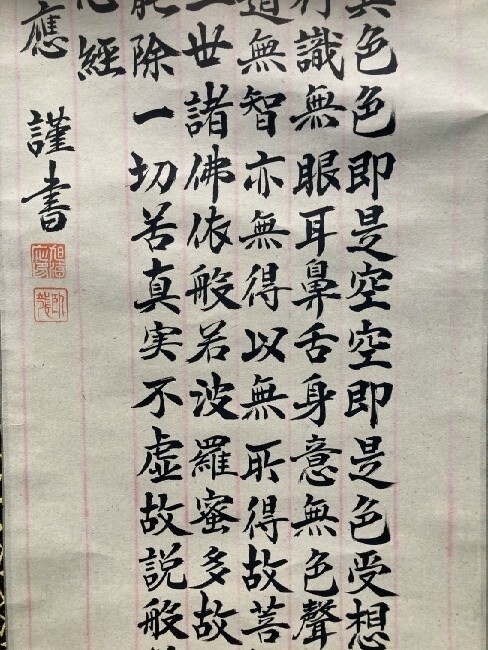 異色色即是空空即是色受想
行識無眼耳鼻舌身意無色聲
道無智亦無得以無所得故菩
三世諸佛依般若波羅蜜多故
能除一切苦真実不虚故説般
心經
應 謹書